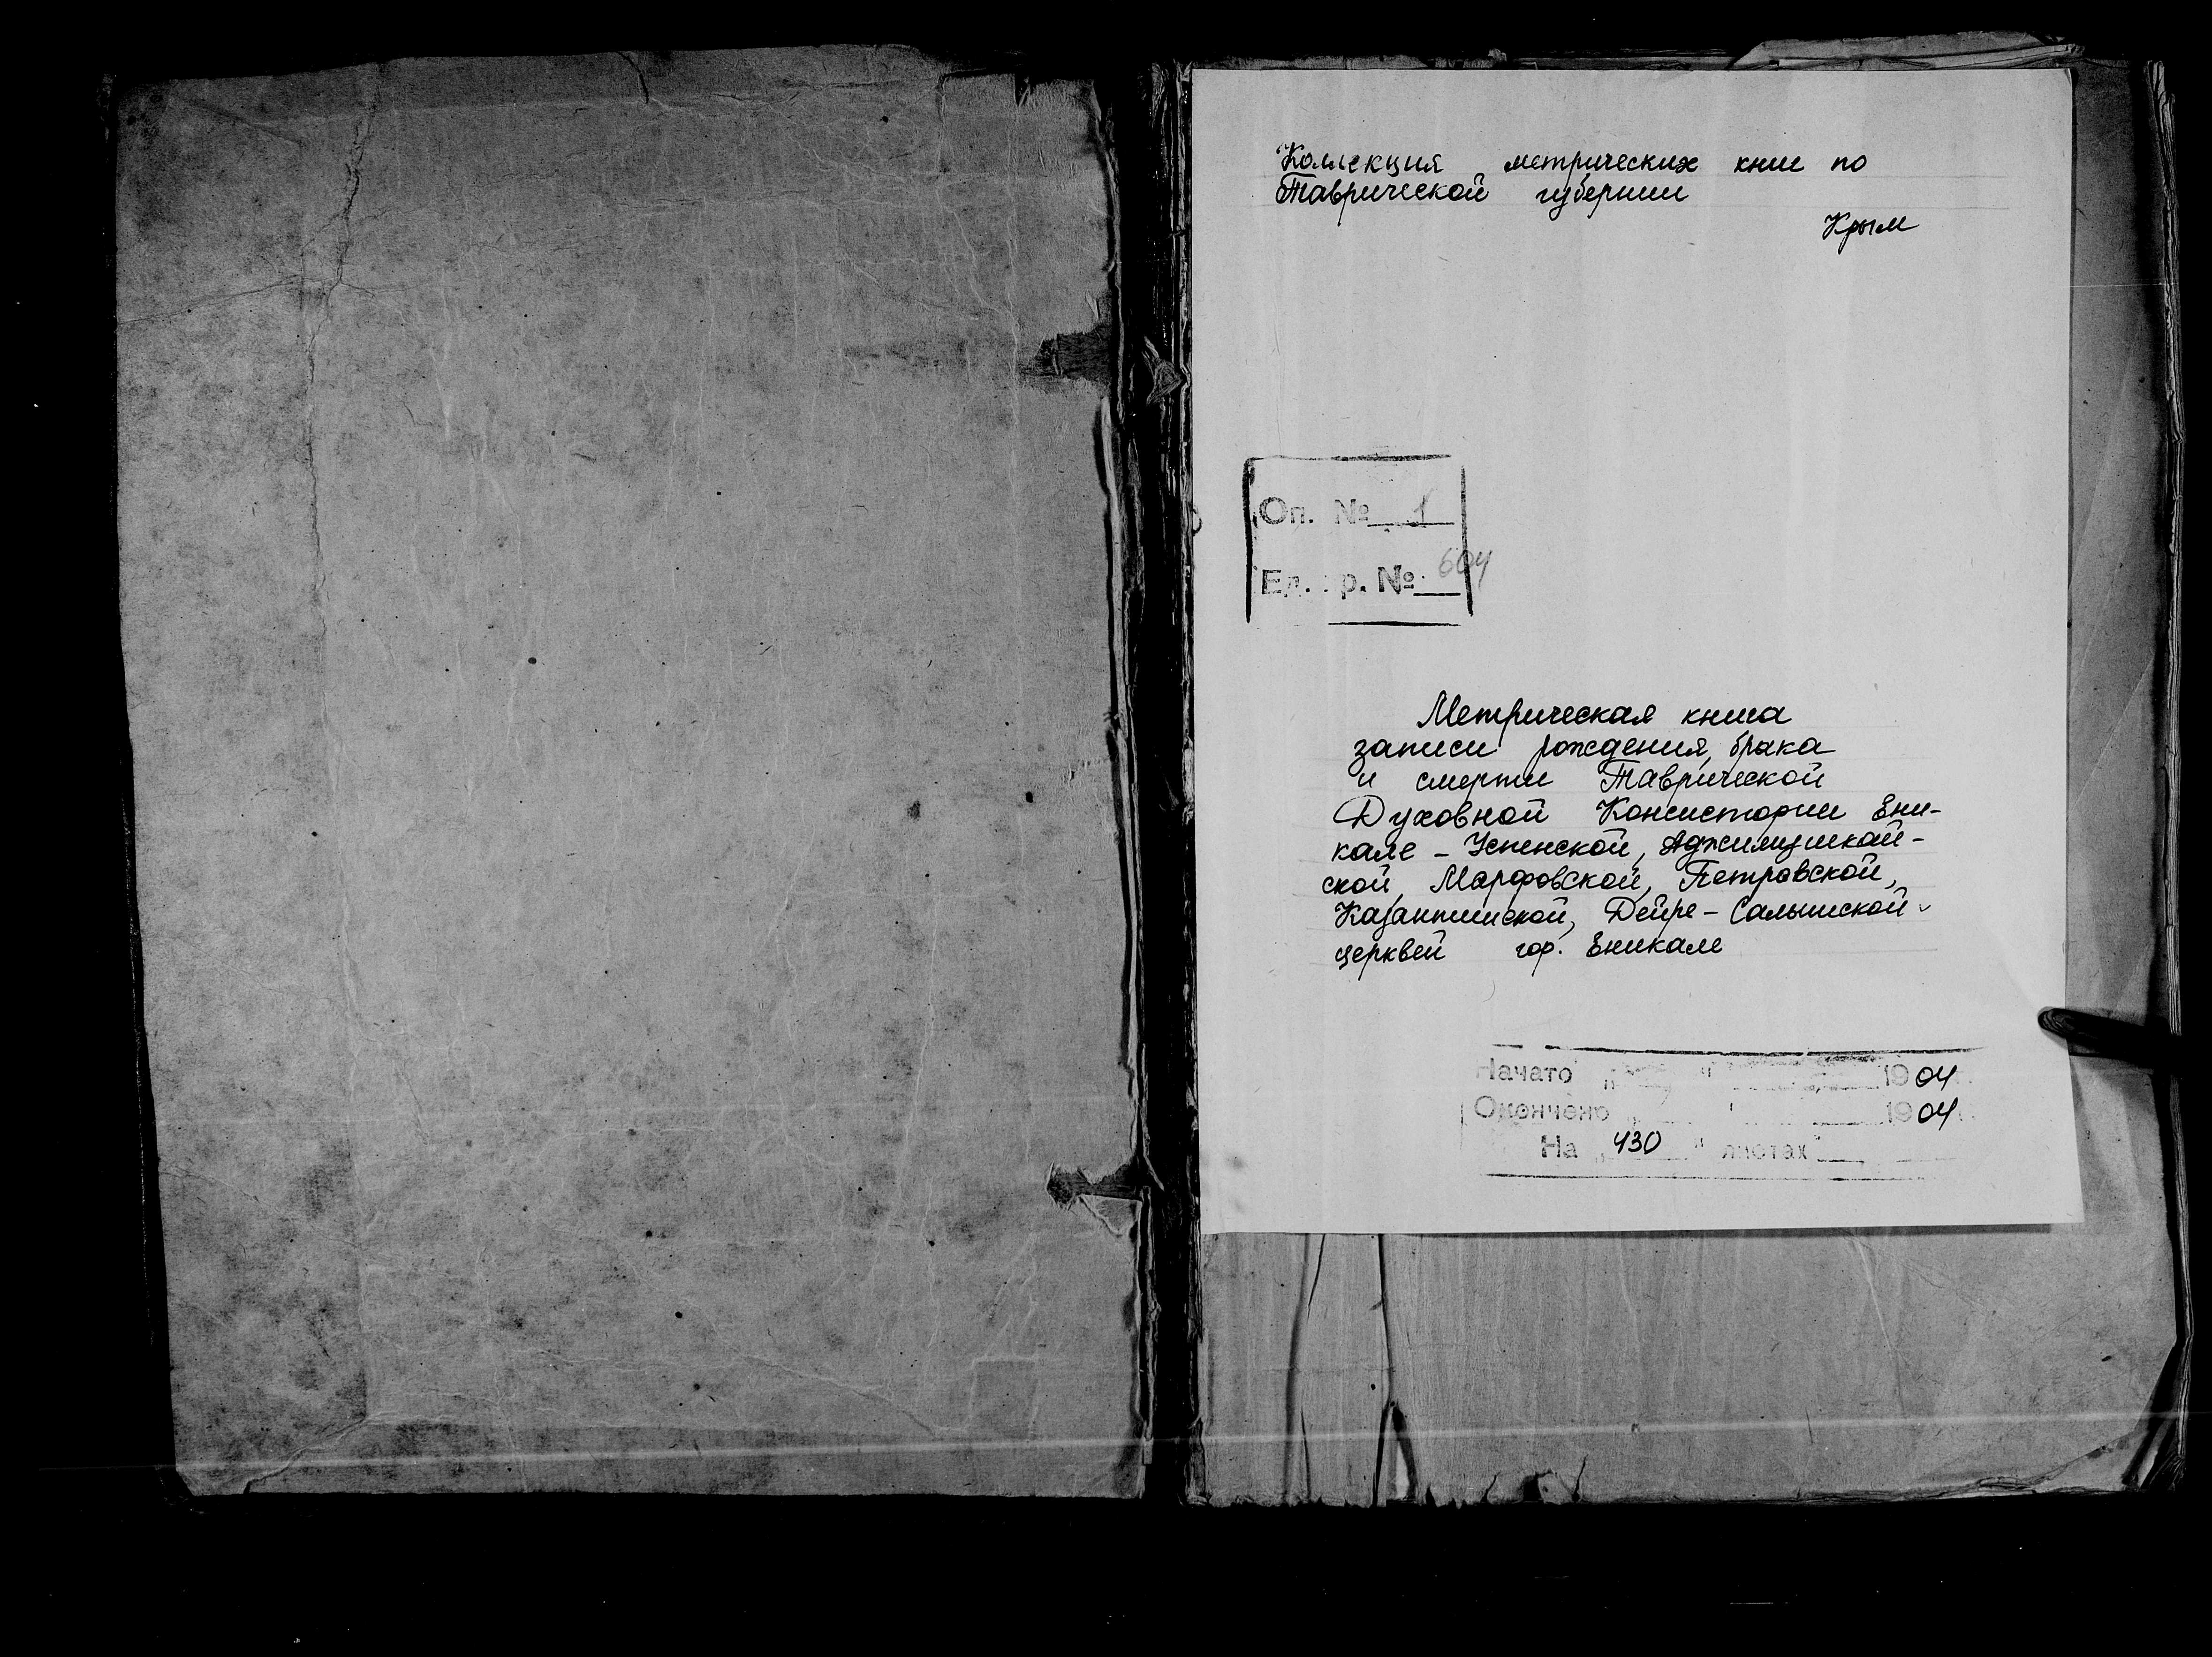 Коллекция метрических книг по
Таврической губернии
Крым
Оп. № 1
Ед. хр. № 604
Метрическая книга
записи рождения, брака
и смерти Таврической
Духовной Консистории Ени-
кале - Успенской, Аджимушкай-
ской, Марфовской, Петровской,
Казантипской, Дейре - Салынской
церквей гор. Еникале
Начато " " 1904
Окончено " " 1904
На "430" листах